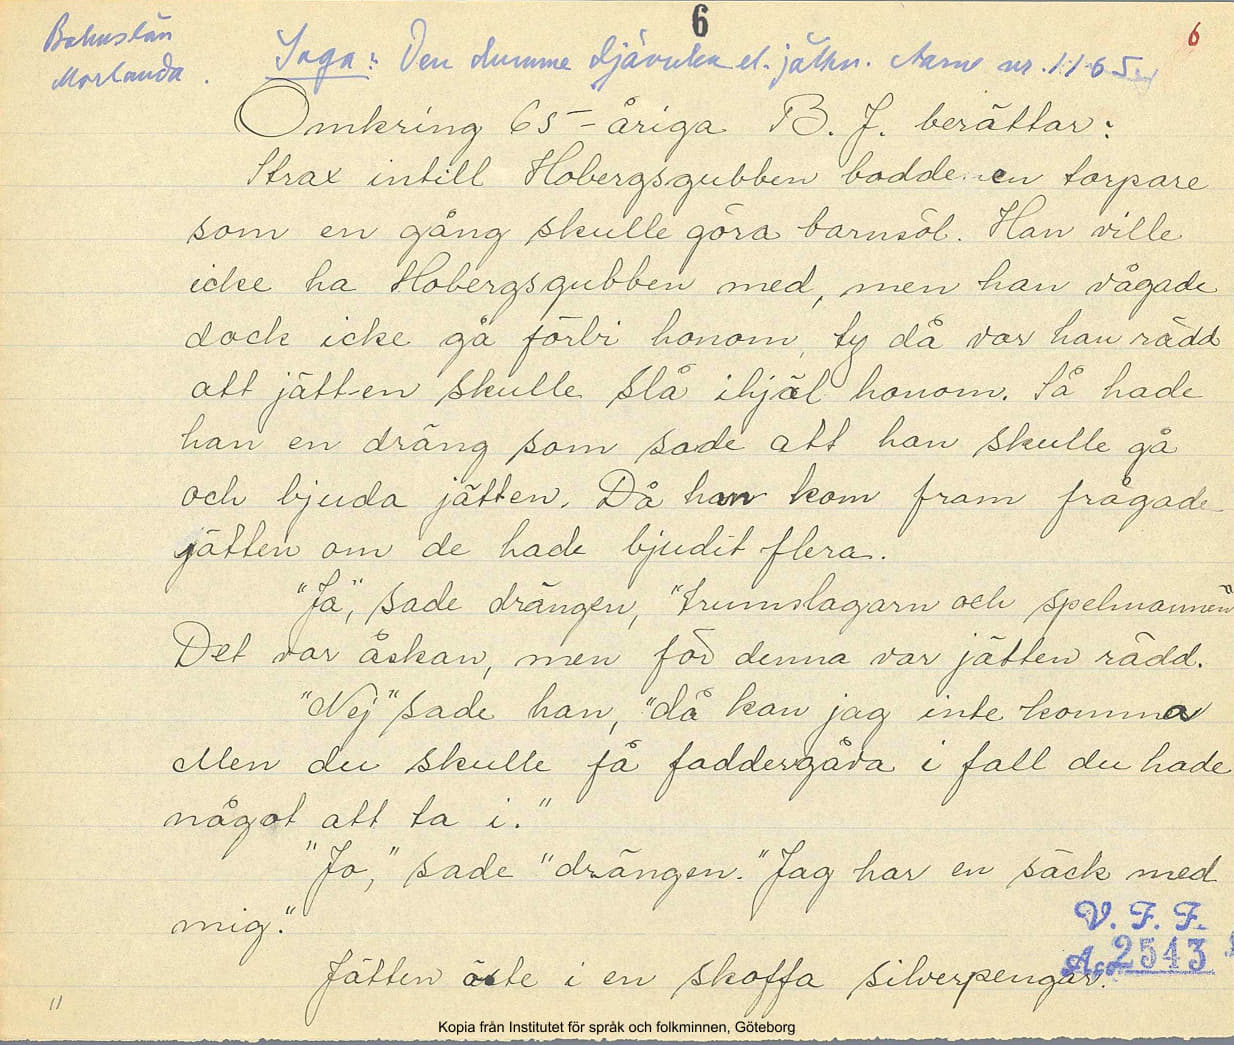 6
6
Bohuslän
Morlanda.
Saga: Den dumme djävulen el. jätten. Aarne nr. 1165
Omkring 65-åriga B. J. berättar:
Strax intill Hobergsgubben bodde en torpare
som en gång skulle göra barnsöl. Han ville
icke ha Hobergsgubben med, men han vågade
dock icke gå förbi honom, ty då var han rädd
att jätten skulle slå ihjäl honom. Så hade
han en dräng som sade att han skulle gå
och bjuda jätten. Då han kom fram frågade
jätten om de hade bjudit flera.
"Ja", sade drängen, "trumslagarn och spelmannen"
Det var åskan, men för denna var jätten rädd.
"Nej" sade han, "då kan jag inte komma
Men du skulle få faddergåva i fall du hade
något att ta i."
"Jo," sade "drängen. "Jag har en säck med
mig."
Jätten öste i en skoffa silverpengar.
V. F. F.
Acc. 2543
"
Kopia från Institutet för språk och folkminnen, Göteborg